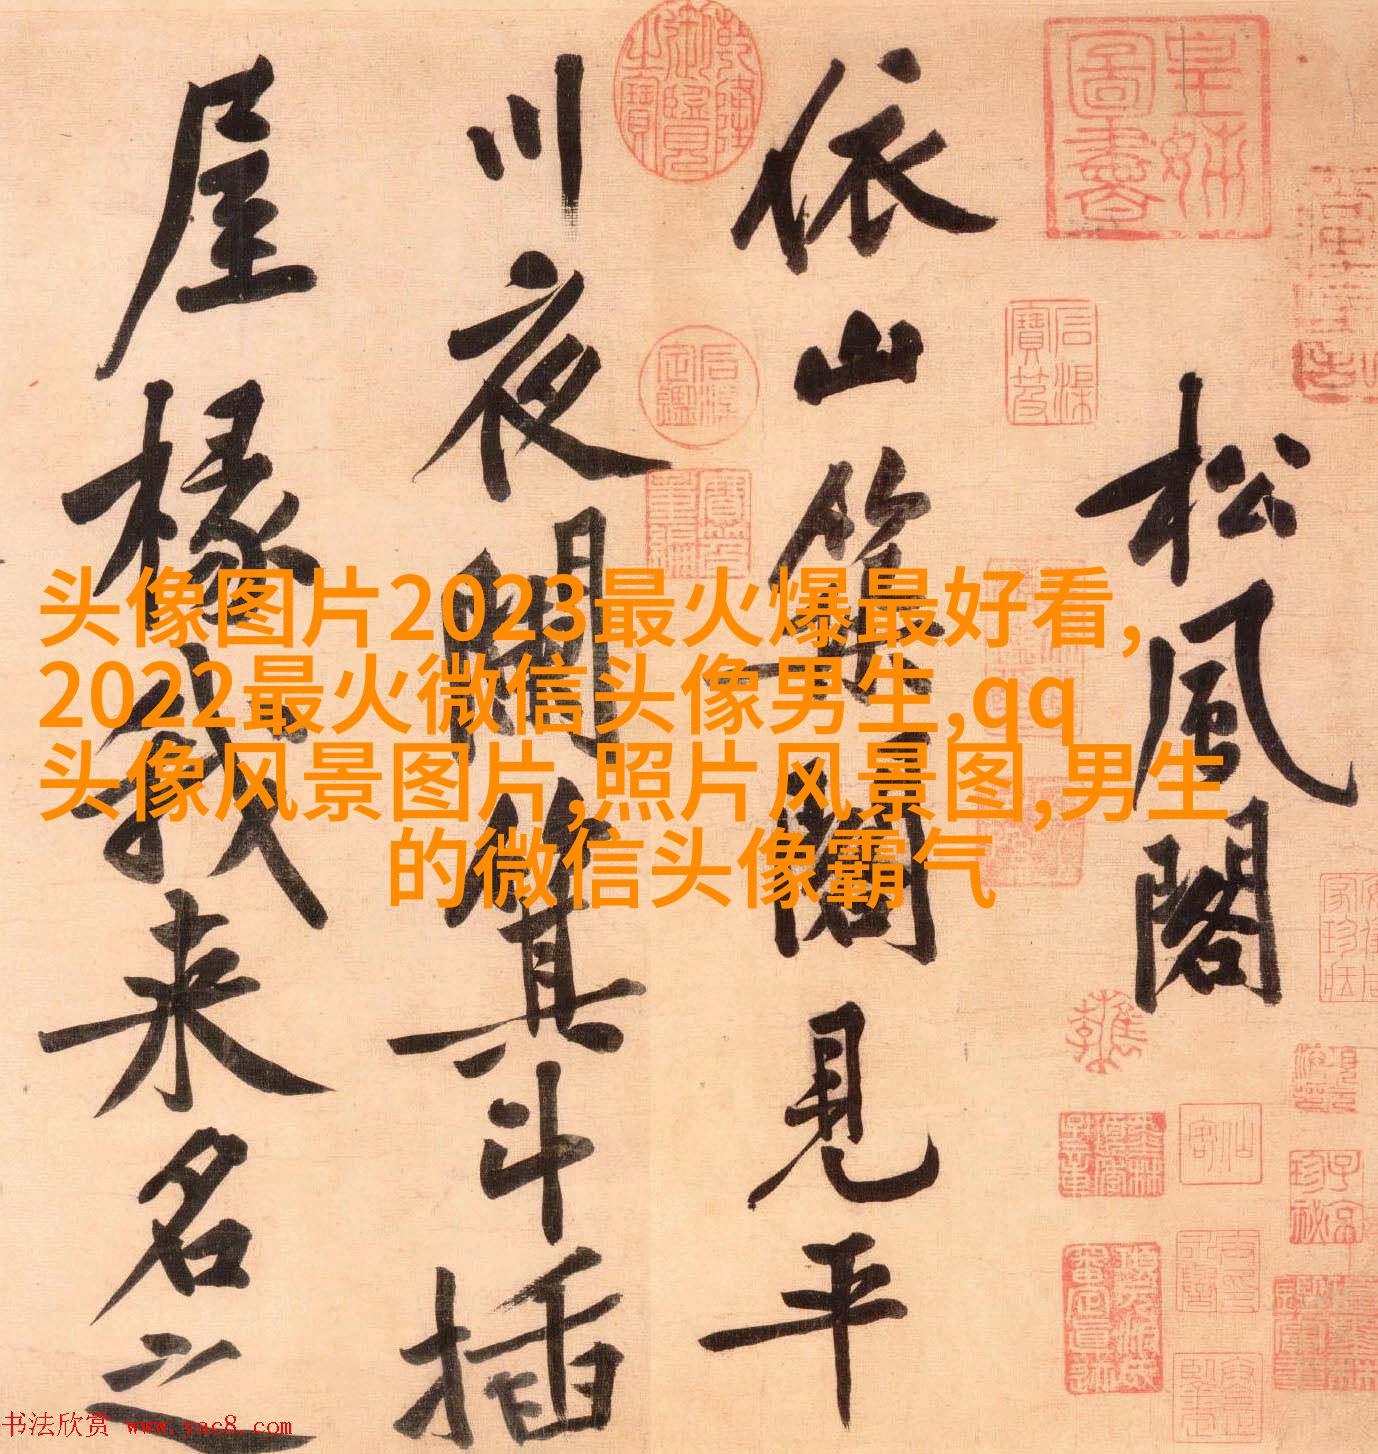 松風閣
依山築閣見平
川夜闌箕斗插
屋椽我来名之
头像图片2023最火爆最好看,
2022最火微信头像男生,qq
头像风景图片,照片风景图,男生
的微信头像霸气
书法欣赏 www.yac8.com